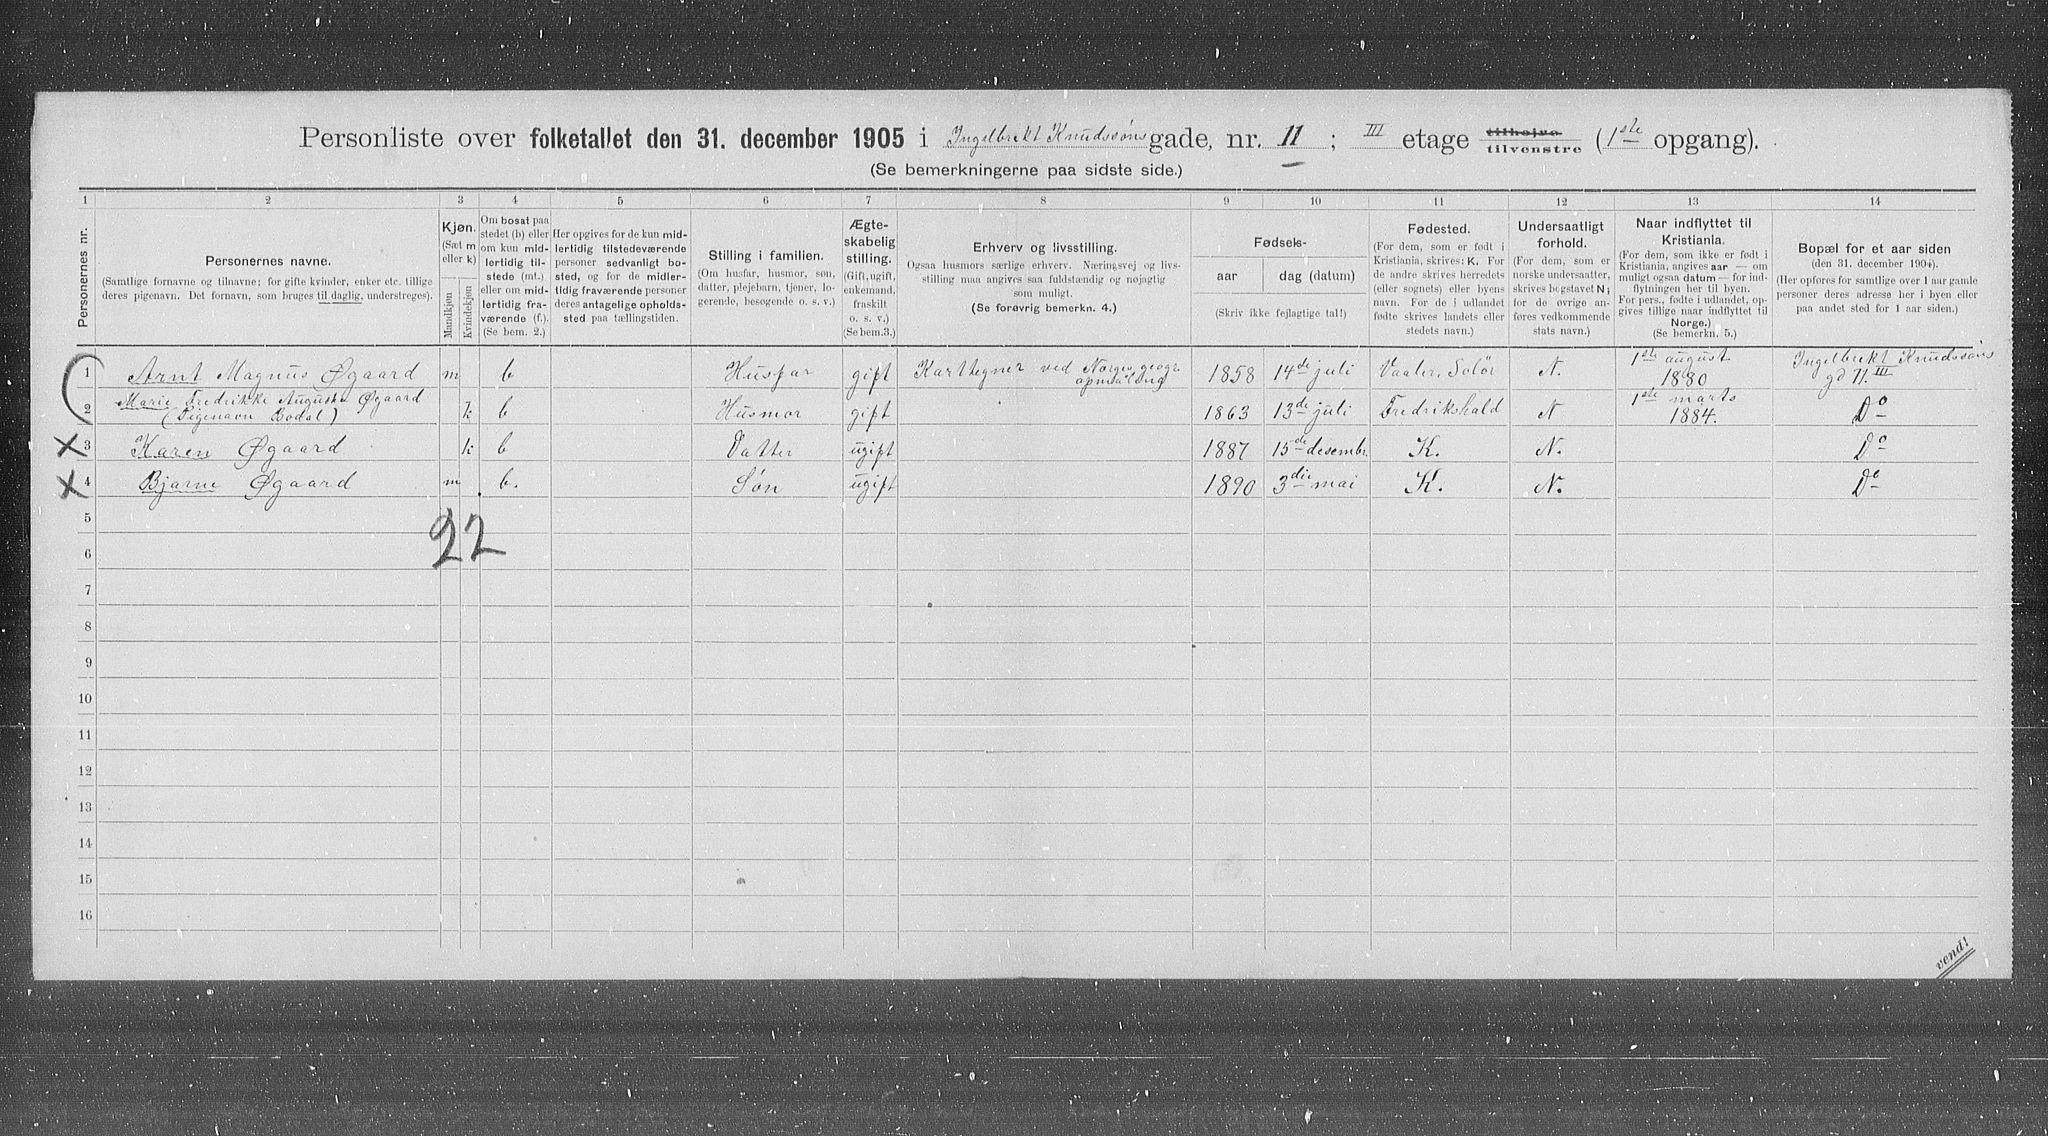 Personliste over folketallet den 31. december 1905 i Ingelbrekt Knudssøns gade, nr. 11 ; III etage tilhøjre tilvenstre (1ste opgang).
(Se bemerkningerne paa sidste side.)
1 2 3 4 5 6 7 8 9 10 11 12 13 14
Personernes nr.
Personernes navne.
(Samtlige fornavne og tilnavne; for gifte kvinder, enker etc. tillige
deres pigenavn. Det fornavn, som bruges til daglig, understreges).
Kjøn.
(Sæt m
eller k)
Mandkjøn
Kvindekjøn
Om bosat paa
stedet (b) eller
om kun mid-
lertidig til-
stede (mt.)
eller om mid-
lertidig fra-
værende (f.).
(Se bem. 2.)
Her opgives for de kun mid-
lertidig tilstedeværende
personer sedvanligt bo-
sted, og for de midler-
tidig fraværende personer
deres antagelige opholds-
sted paa tællingstiden.
Stilling i familien.
(Om husfar, husmor, søn,
datter, plejebarn, tjener, lo-
gerende, besøgende o. s. v.)
Ægte-
skabelig
stilling.
(Gift, ugift,
enkemand,
fraskilt
o. s. v.)
(Se bem.3.)
Erhverv og livsstilling.
Ogsaa husmors særlige erhverv. Næringsvej og livs-
stilling maa angives saa fuldstændig og nøjagtig
som muligt.
(Se forøvrig bemerkn. 4.)
Fødsels-
aar dag (datum)
(Skriv ikke fejlagtige tal!)
Fødested.
(For dem, som er født i
Kristiania, skrives: K. For
de andre skrives herredets
(eller sognets) eller byens
navn. For de i udlandet
fødte skrives landets eller
stedets navn.)
Undersaatligt
forhold.
(For dem, som er
norske undersaatter,
skrives bogstavet N;
for de øvrige an-
føres vedkommende
stats navn.)
Naar indflyttet til
Kristiania.
(For dem, som ikke er født i
Kristiania, angives aar — om
muligt ogsaa datum — for ind-
flytningen her til byen.
For pers., fødte i udlandet, op-
gives tillige naar indflyttet til
Norge.)
(Se bemerkn. 5.)
Bopæl for et aar siden
(den 31. december 1904.)
(Her opføres for samtlige over 1 aar gamle
personer deres adresse her i byen eller
paa andet sted for 1 aar siden.)
1 Arnt Magnus Øgaard m b Husfar gift Karttegner ved Norges geogr. opmåling 1858 14de juli Vaaler, Solør N. 1ste august 1880 Ingelbrekt Knudssøns gd 11. III
2 Marie Fredrikke Auguste Øgaard (Pigenavn Bodal) k b Husmor gift 1863 13de juli Fredrikshald N 1ste marts 1884. Do
X 3 Karen Øgaard k b Datter ugift 1887 15de desembr. K. N. Do
X 4 Bjarne Øgaard m b. Søn ugift 1890 3die mai K. N. Do
5
22
6
7
8
9
10
11
12
13
14
15
16
vend!